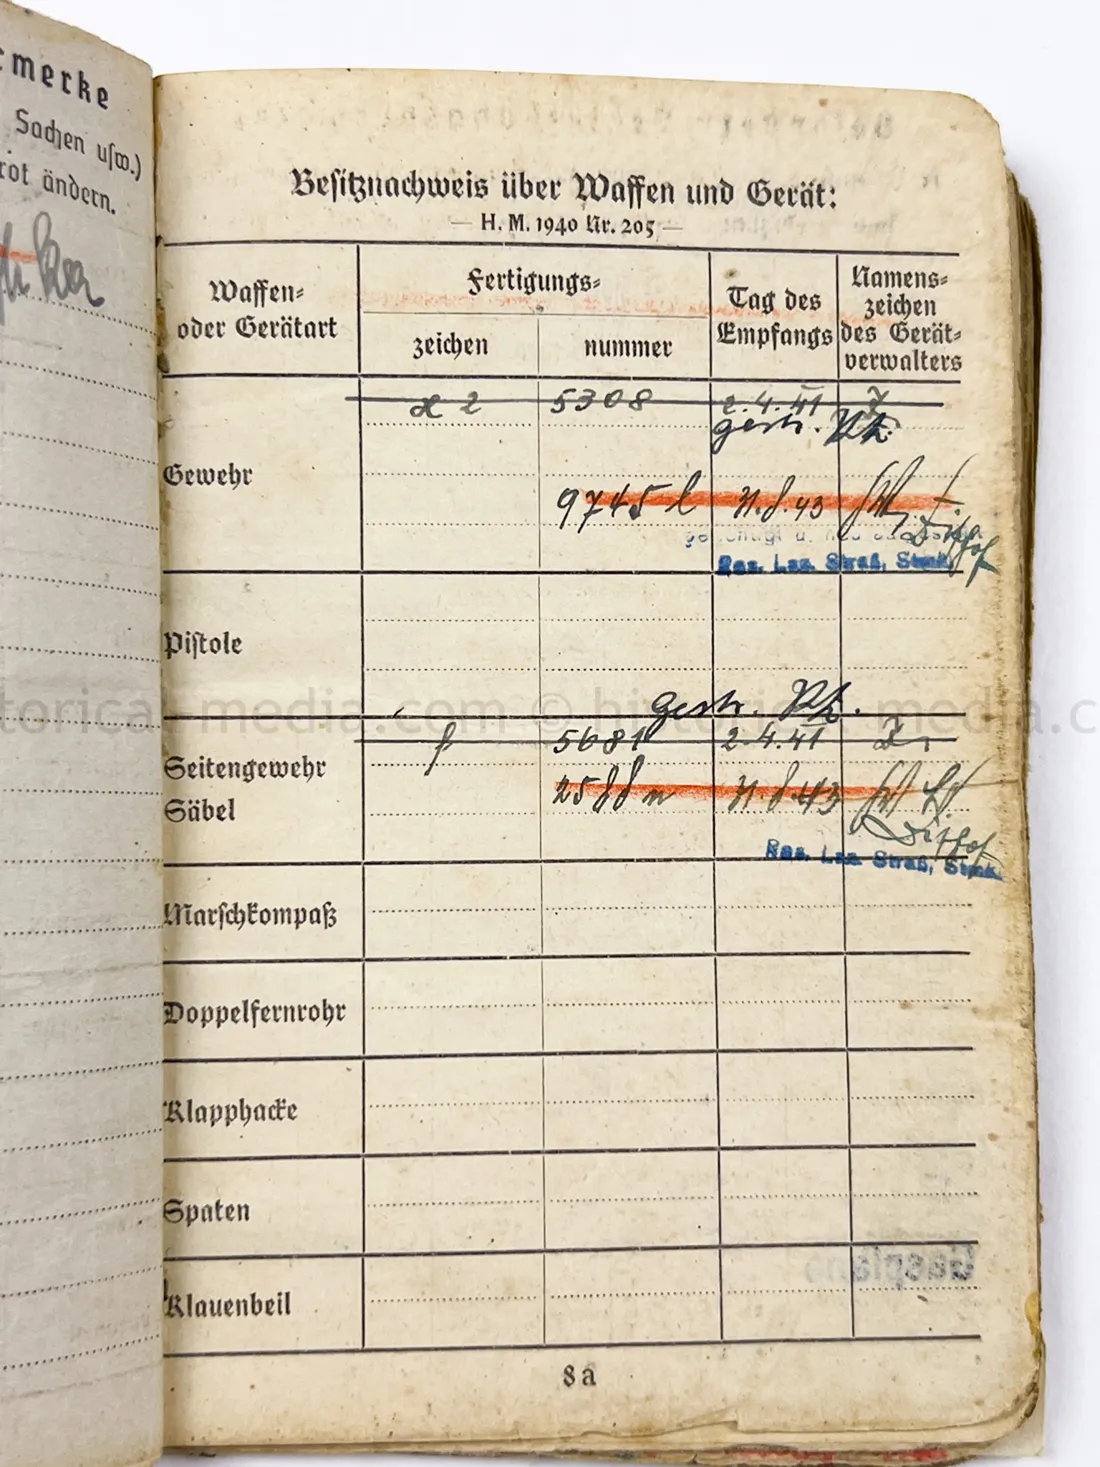 rmerke
Sachen usw.)
rot ändern.
Besitznachweis über Waffen und Gerät:
— H. M. 1940 Nr. 205 —
Waffen-
oder Gerätart
Fertigungs-
zeichen
nummer
Tag des
Empfangs
Namens-
zeichen
des Gerät-
verwalters
x 2 5308 2.4.41
gestr.
Gewehr
9745 l 31.8.43
Res. Laz. Straß, Stmk.
Pistole
gestr.
f 5681 2.4.41
Seitengewehr
Säbel
2588 n 31.8.43
Res. Laz. Straß, Stmk.
Marschkompaß
Doppelfernrohr
Klapphacke
Spaten
Gasplane
Klauenbeil
8a
torical-media.com © historical-media.c